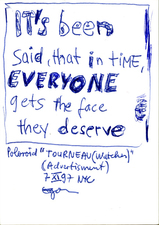 IT's been
said, that in tiME,
EVERYONE
gets the face
they deserve
Polaroid "TOURNEAU (Watches)"
(Advertisment)
7 XI 97 NYC